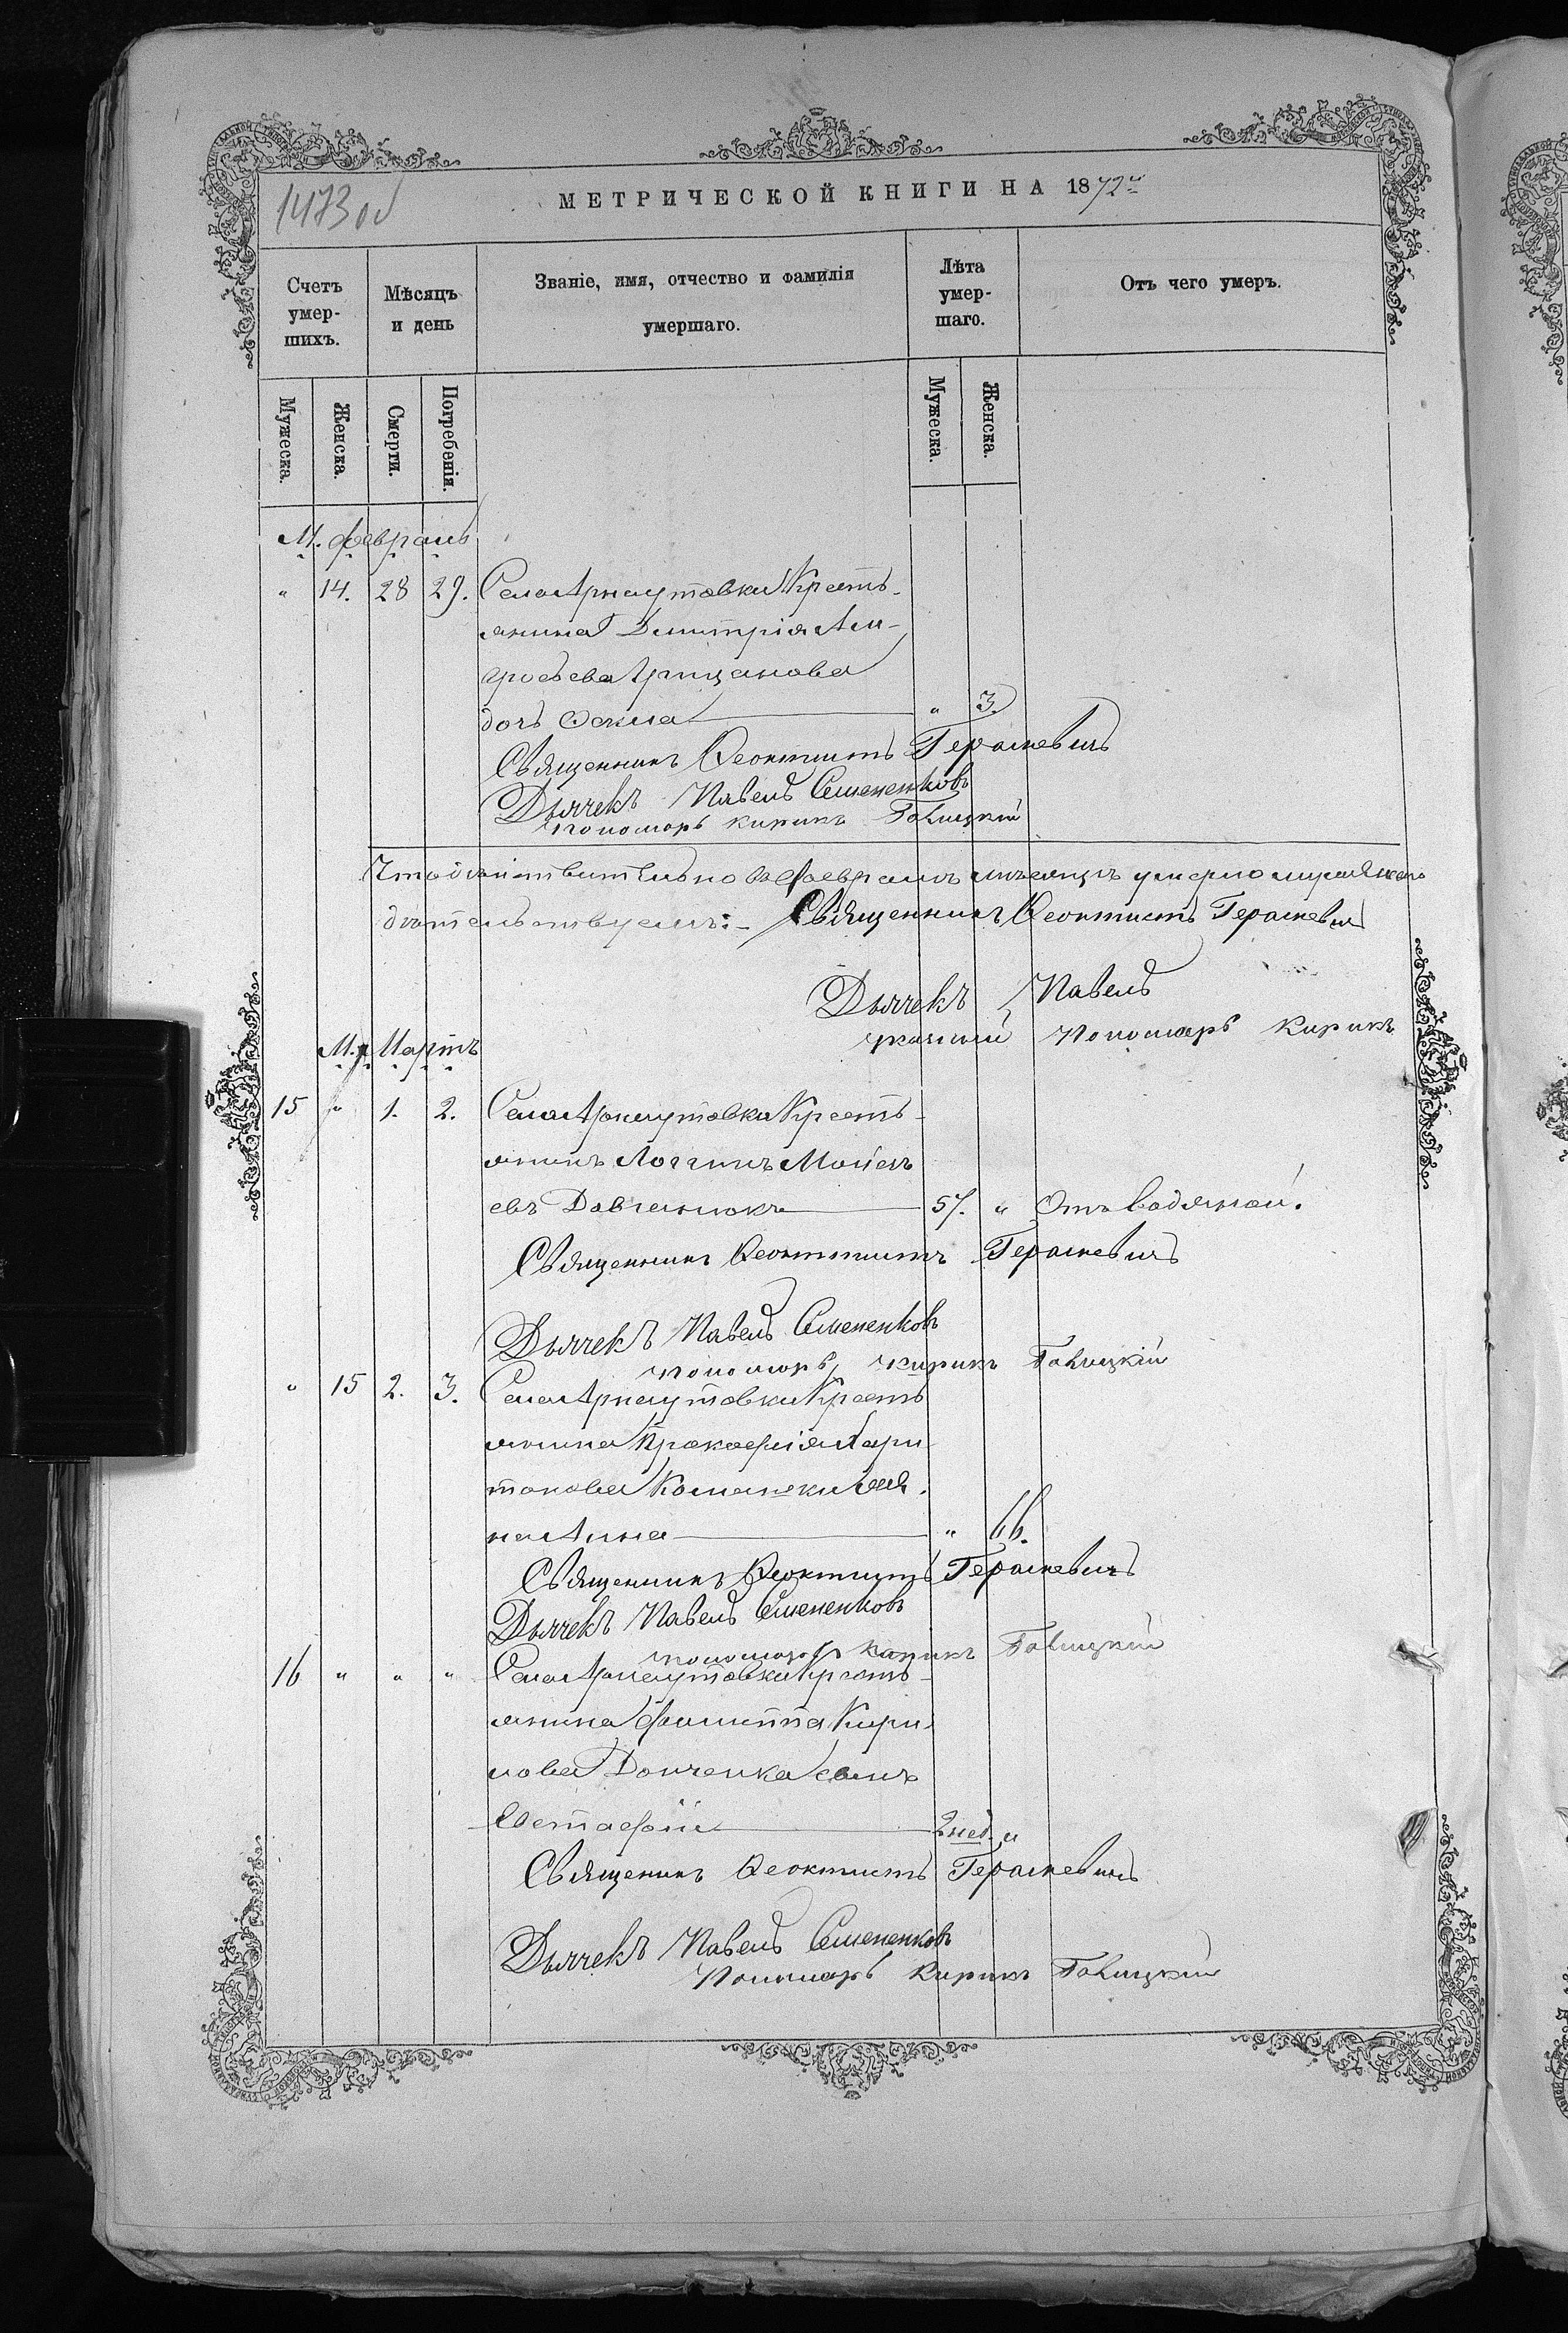 1473 об
МЕТРИЧЕСКОЙ КНИГИ НА 1872й
Счетъ умер-шихъ.
Мѣсяцъ и день
Званіе, имя, отчество и фамилія
умершаго.
Лѣта умер-шаго.
Отъ чего умеръ.
Мужеска.
Женска.
Смерти.
Погребенія.
Мужеска.
Женска.
М. февраль
" 14. 28 29. Села Арнаутовки Кресть-
янина Димитрія Ам-
вросьева Грицанова
дочь " 3.
Священникъ Ѳеоктистъ Гераневичъ
Дьячекъ Павелъ Семененковъ
пономарь Кирикъ
Что дѣйствительно въ февралѣ мѣсяцѣ умерло
Священникъ Ѳеоктистъ Гераневичъ
Дьячекъ Павелъ
Пономарь Кирикъ
М. Мартъ
15 " 1. 2. Села Арнаутовки Кресть-
янинъ Логгинъ Мойсе
евъ Довганюкъ 57. " Отъ водяной.
Священникъ Ѳеоктистъ Гераневичъ
Дьячекъ Павелъ Семененковъ
пономарь Кирикъ
" 15 2. 3. Села Арнаутовки Кресть
янина Прокофія Хари
тонова
на Анна " 66.
Священникъ Ѳеоктистъ Гераневичъ
Дьячекъ Павелъ Семененковъ
пономарь Кирикъ
16 " " " Села Арнаутовки Кресть-
янина Филиппа Кири
лова Донченка сынъ
Евстафій 2 нед. "
Священикъ Ѳеоктистъ Гераневичъ
Дьячекъ Павелъ Семененковъ
Пономарь Кирикъ